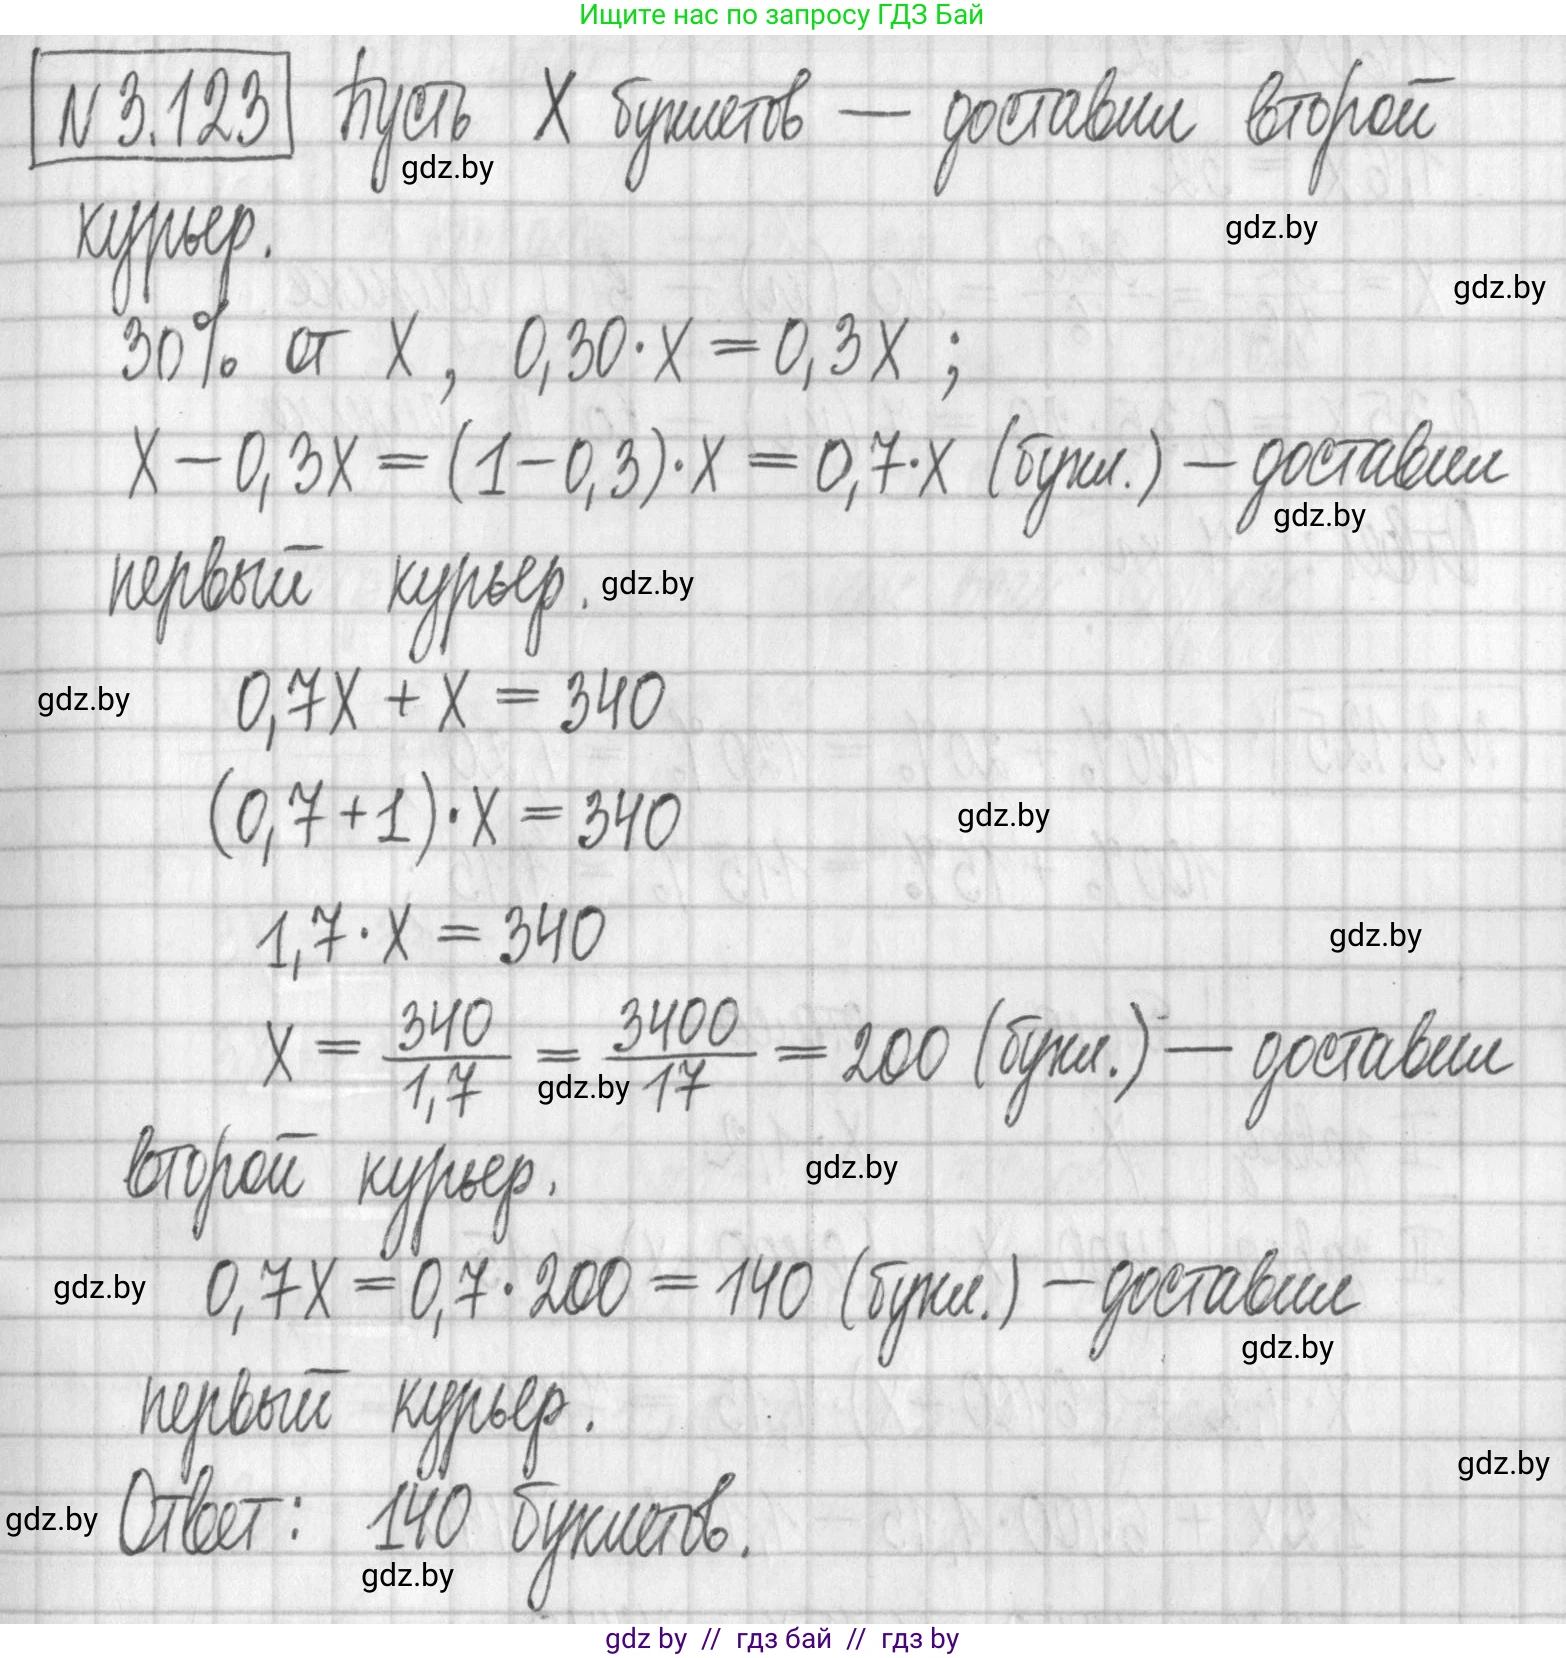 Ищите нас по запросу ГДЗ Бай
N 3.123 Пусть X буклетов — доставил второй
gdz.by
курьер.
gdz.by
gdz.by
30% от X, 0,30·X = 0,3X ;
X − 0,3X = (1−0,3)·X = 0,7·X (букл.) — доставил
gdz.by
первый курьер. gdz.by
gdz.by 0,7X + X = 340
(0,7+1)·X = 340 gdz.by
1,7·X = 340 gdz.by
X = 340/1,7 = 3400/17 = 200 (букл.) — доставил
gdz.by
второй курьер. gdz.by
gdz.by 0,7X = 0,7·200 = 140 (букл.) — доставил
gdz.by
первый курьер.
gdz.by
gdz.by Ответ: 140 буклетов.
gdz.by
gdz by // гдз бай // гдз by